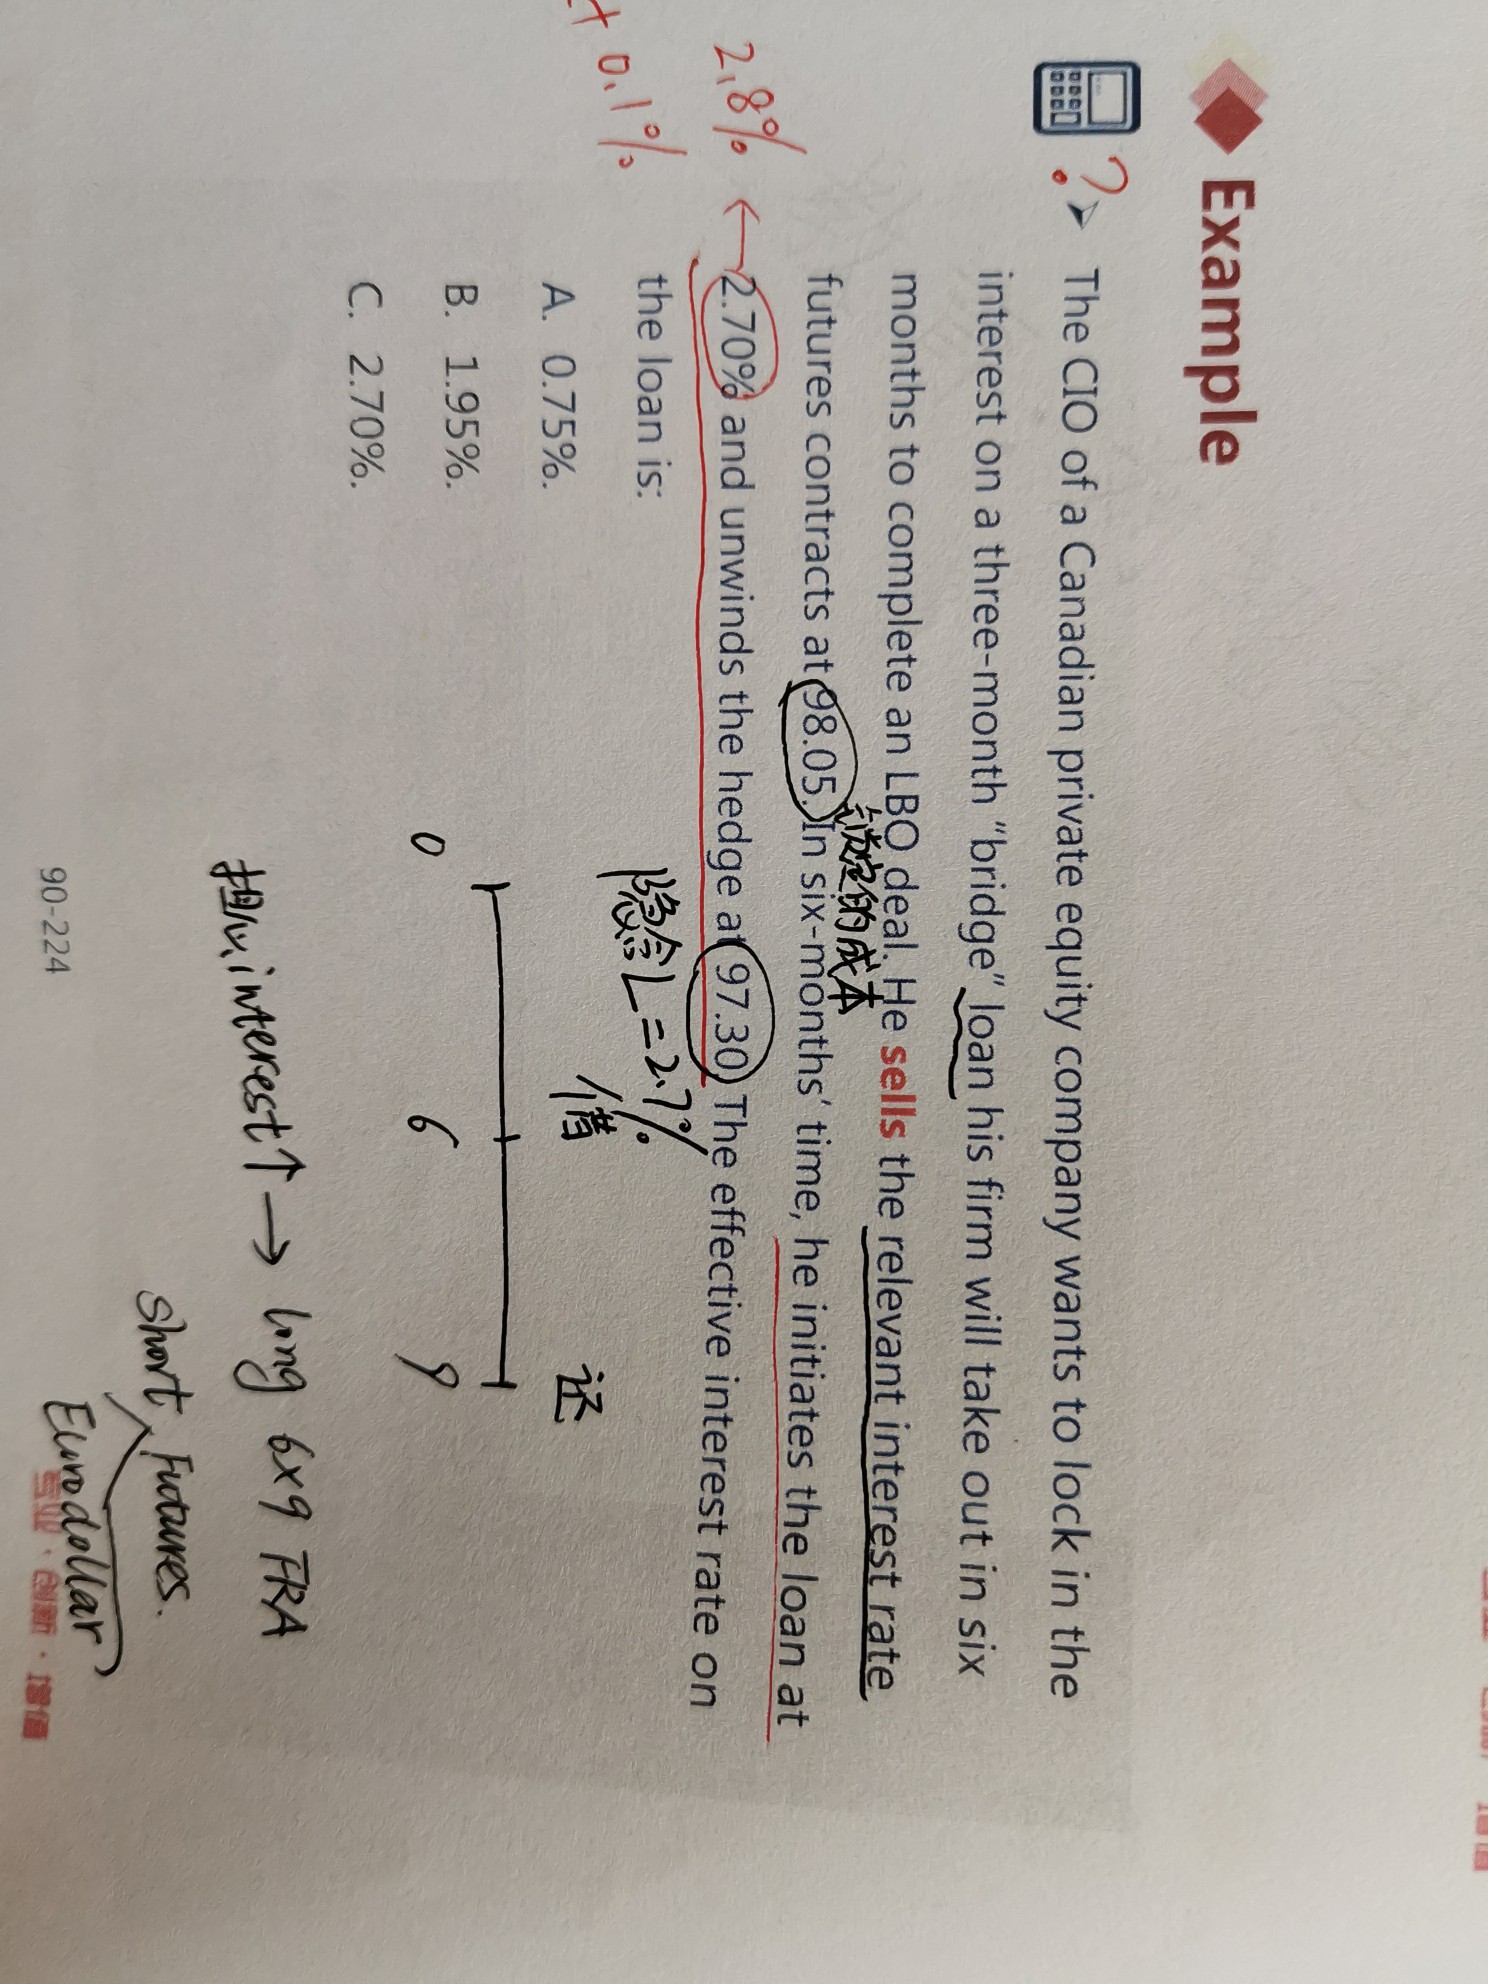 Example
? ➢ The CIO of a Canadian private equity company wants to lock in the
interest on a three-month "bridge" loan his firm will take out in six
months to complete an LBO deal. He sells the relevant interest rate
锁定的成本
futures contracts at 98.05. In six-months' time, he initiates the loan at
2.8% ← 2.70% and unwinds the hedge at 97.30. The effective interest rate on
+ 0.1%
the loan is:
隐含L=2.7%
A. 0.75%.
借 还
B. 1.95%.
0 6 9
C. 2.70%.
担心interest↑ → long 6×9 FRA
short Futures.
Eurodollar
90-224
专业·创新·增值